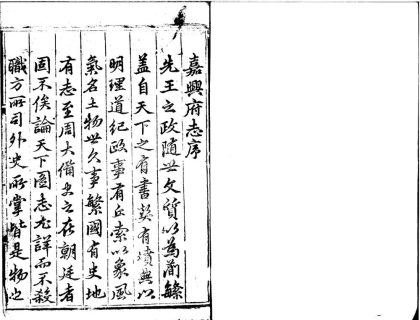 嘉興府志序
先王之政隨世文質以為簡繁
蓋自天下之有書契有墳典以
明理道紀政事有丘索以象風
氣名土物世久事繁國有史地
有志至周大備史之在朝廷者
固不俟論天下圖志尤詳而不殺
職方所司外史所掌皆是物也